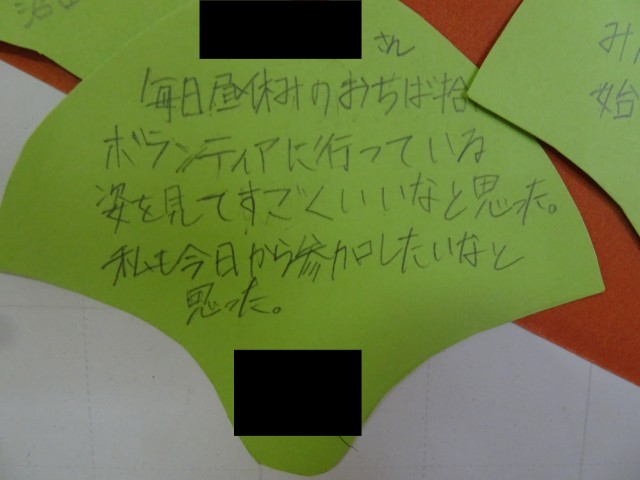 さん
毎日昼休みのおちば拾
ボランティアに行っている
姿を見てすごくいいなと思った。
私も今日から参加したいなと
思った。
み
始